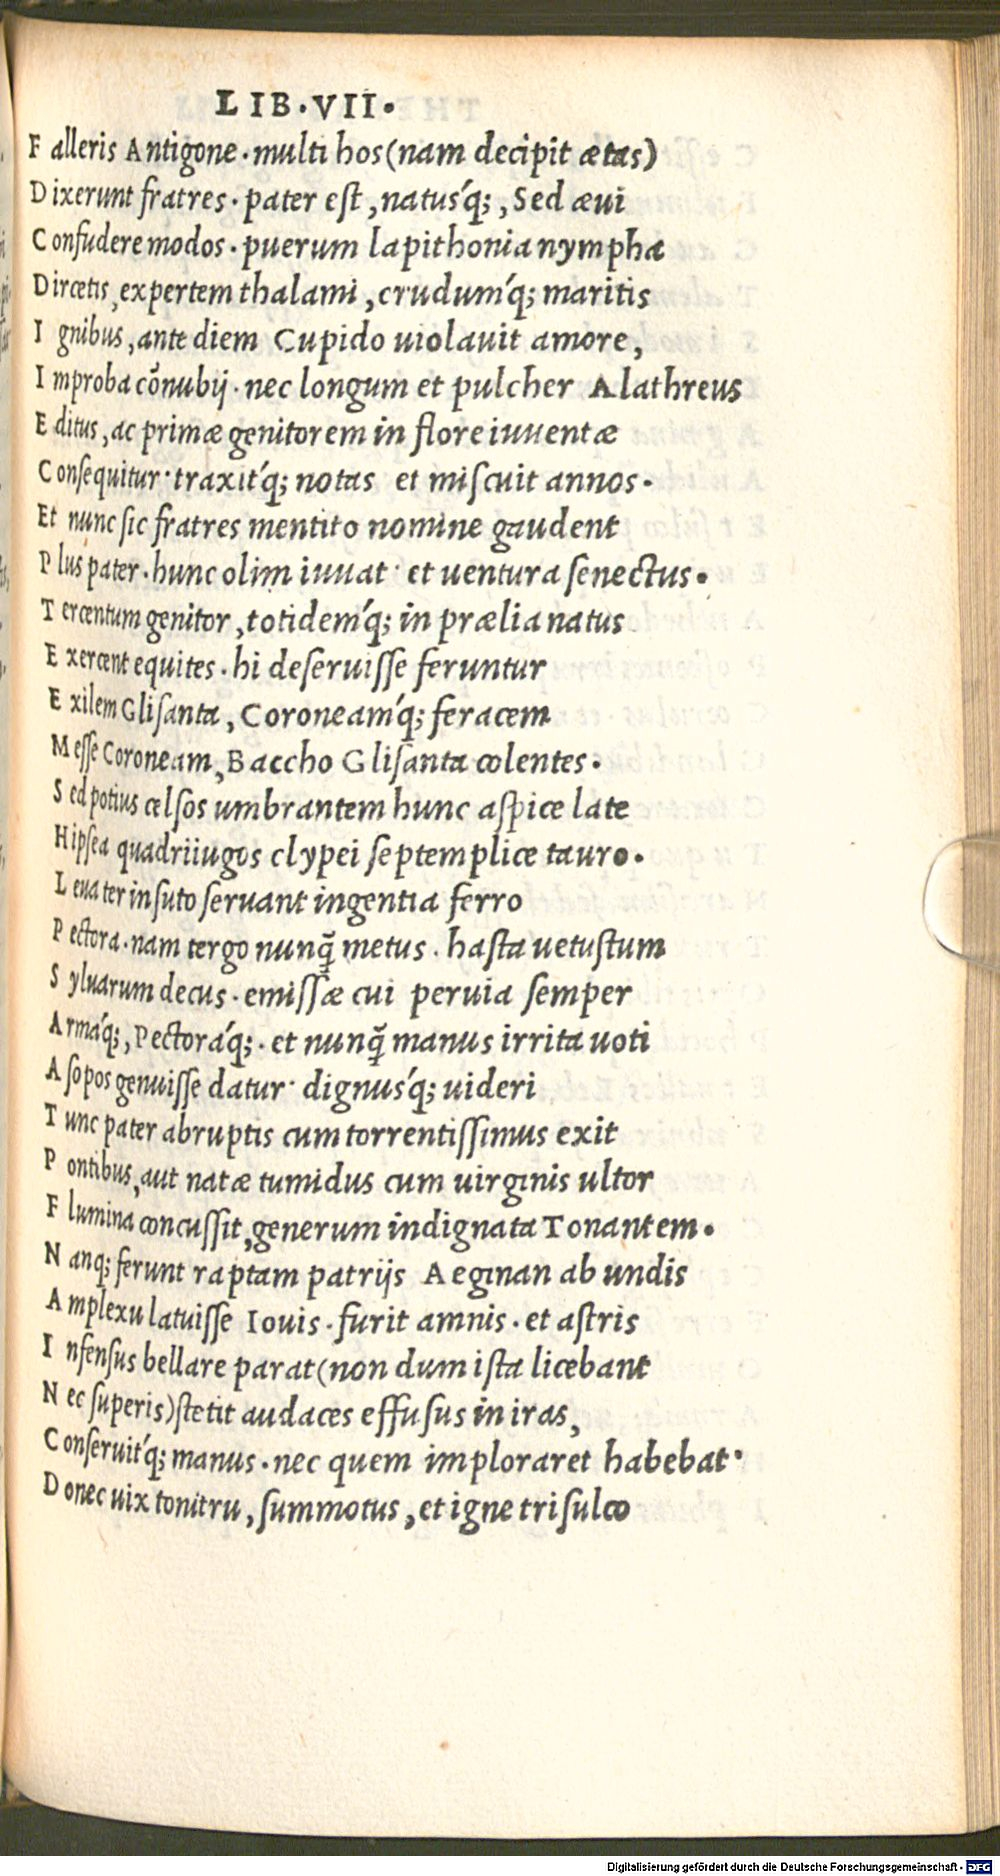 LIB·VII·
Falleris Antigone·multi hos(nam decipit ætas)
Dixerunt fratres·pater est,natusq́;,Sed æui
Confudere modos·puerum lapithonia nympha
Dircetis,expertem thalami,crudumq́; maritis
Ignibus,ante diem Cupido uiolauit amore,
Improba cōnubij·nec longum et pulcher Alathreus
Editus,ac primæ genitorem in flore iuuentæ
Consequitur·traxitq́; notas et miscuit annos·
Et nunc sic fratres mentito nomine gaudent
Plus pater·hunc olim iuuat·et uentura senectus·
Tercentum genitor,totidemq́; in prælia natus
Exercent equites·hi deseruisse feruntur
Exilem Glisanta,Coroneamq́; feracem
Messe Coroneam,Baccho Glisanta colentes·
Sed potius celsos umbrantem hunc aspice late
Hipsea quadriiugos clypei septemplice tauro·
Leua ter insuto seruant ingentia ferro
Pectora·nam tergo nunq̄ metus·hasta uetustum
Syluarum decus·emissæ cui peruia semper
Armaq́;,Pectoraq́;·et nunq̄ manus irrita uoti
Asopos genuisse datur·dignusq́; uideri
Tunc pater abruptis cum torrentissimus exit
Pontibus,aut natæ tumidus cum uirginis ultor
Flumina concussit,generum indignata Tonantem·
Nanq; ferunt raptam patrijs Aeginan ab undis
Amplexu latuisse Iouis·furit amnis·et astris
Infensus bellare parat(non dum ista licebant
Nec superis)stetit audaces effusus in iras,
Conseruitq́; manus·nec quem imploraret habebat·
Donec uix tonitru,summotus,et igne trisulco
Digitalisierung gefördert durch die Deutsche Forschungsgemeinschaft - DFG